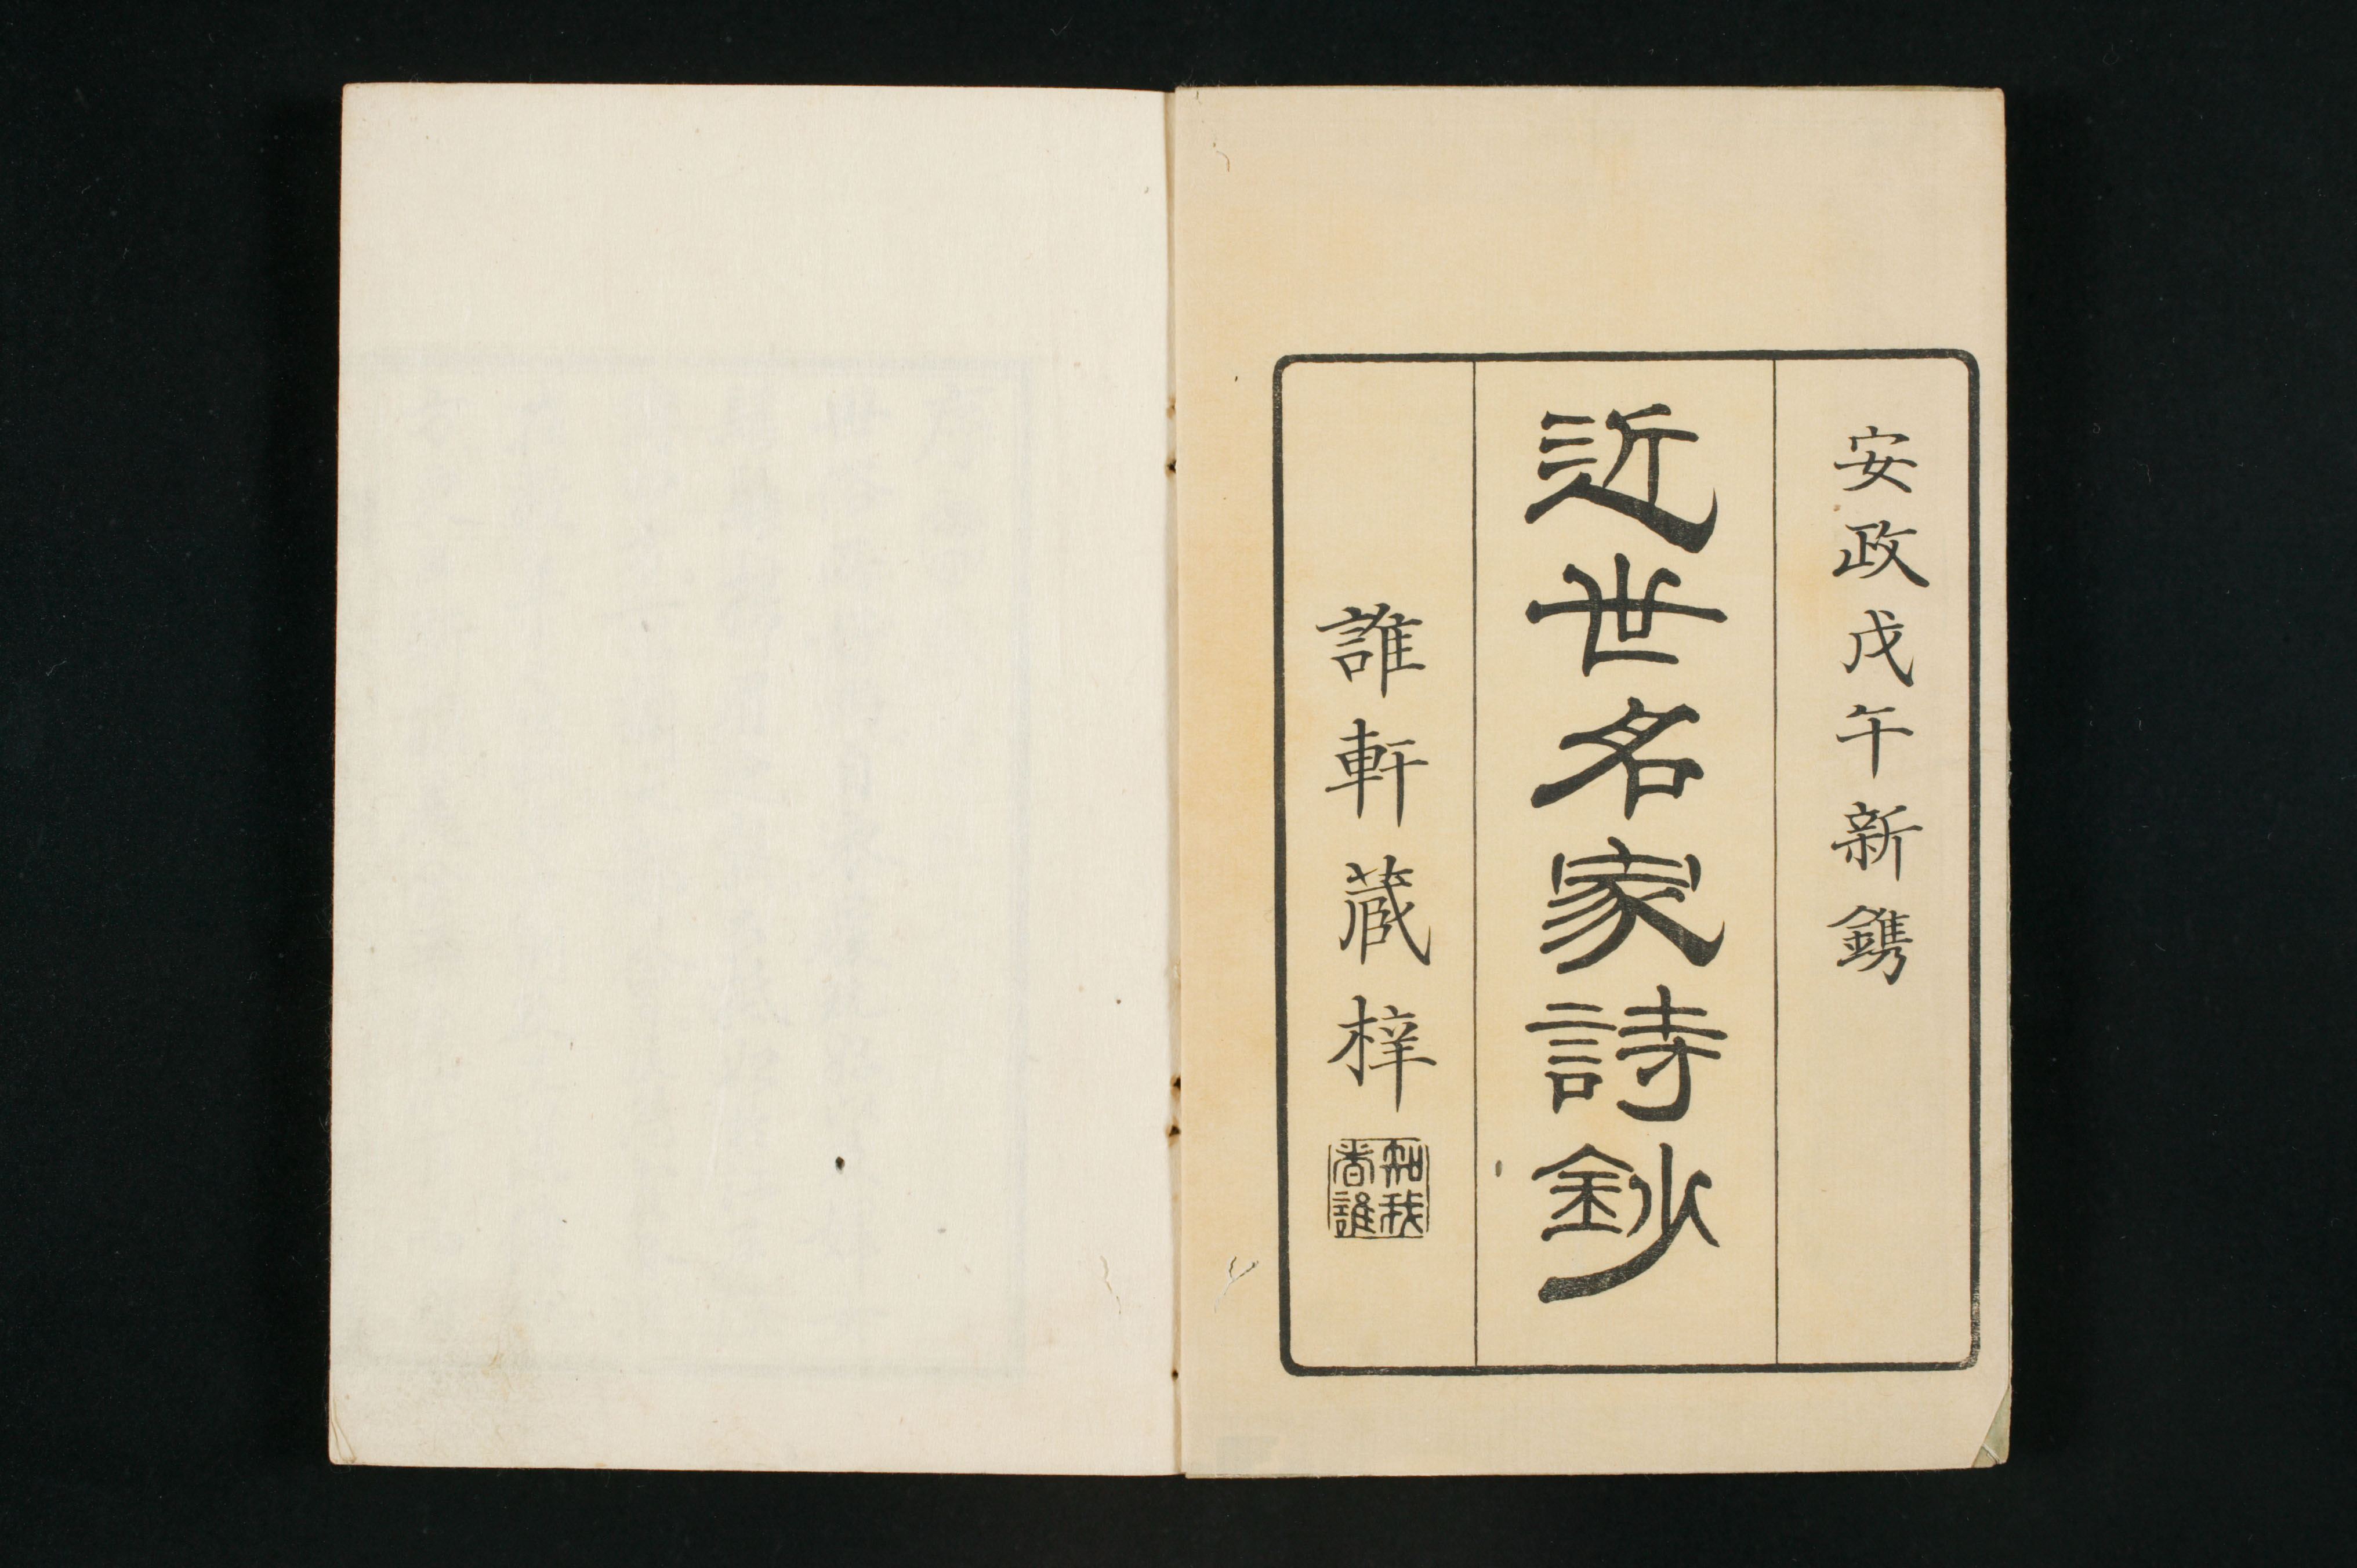 安政戊午新鐫
近世名家詩鈔
誰軒蔵梓
知我
者誰